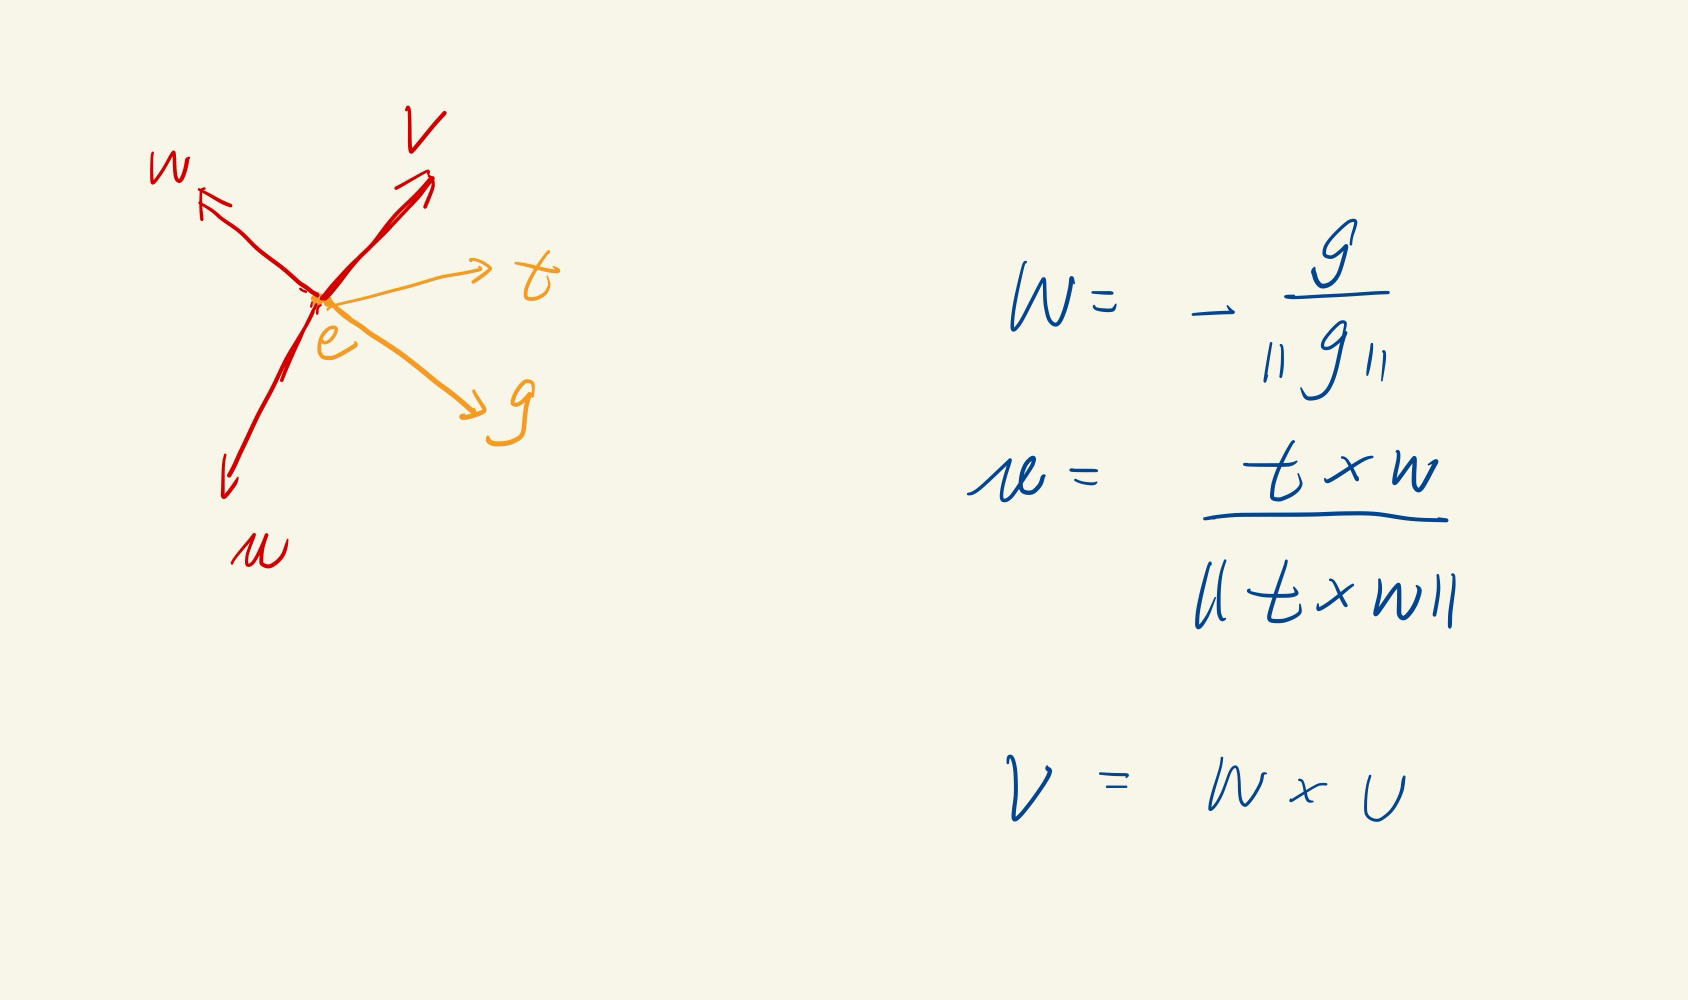 V
w
t
e
g
u
W = - g / ||g||
u = t × w / ||t × w||
V = W × U